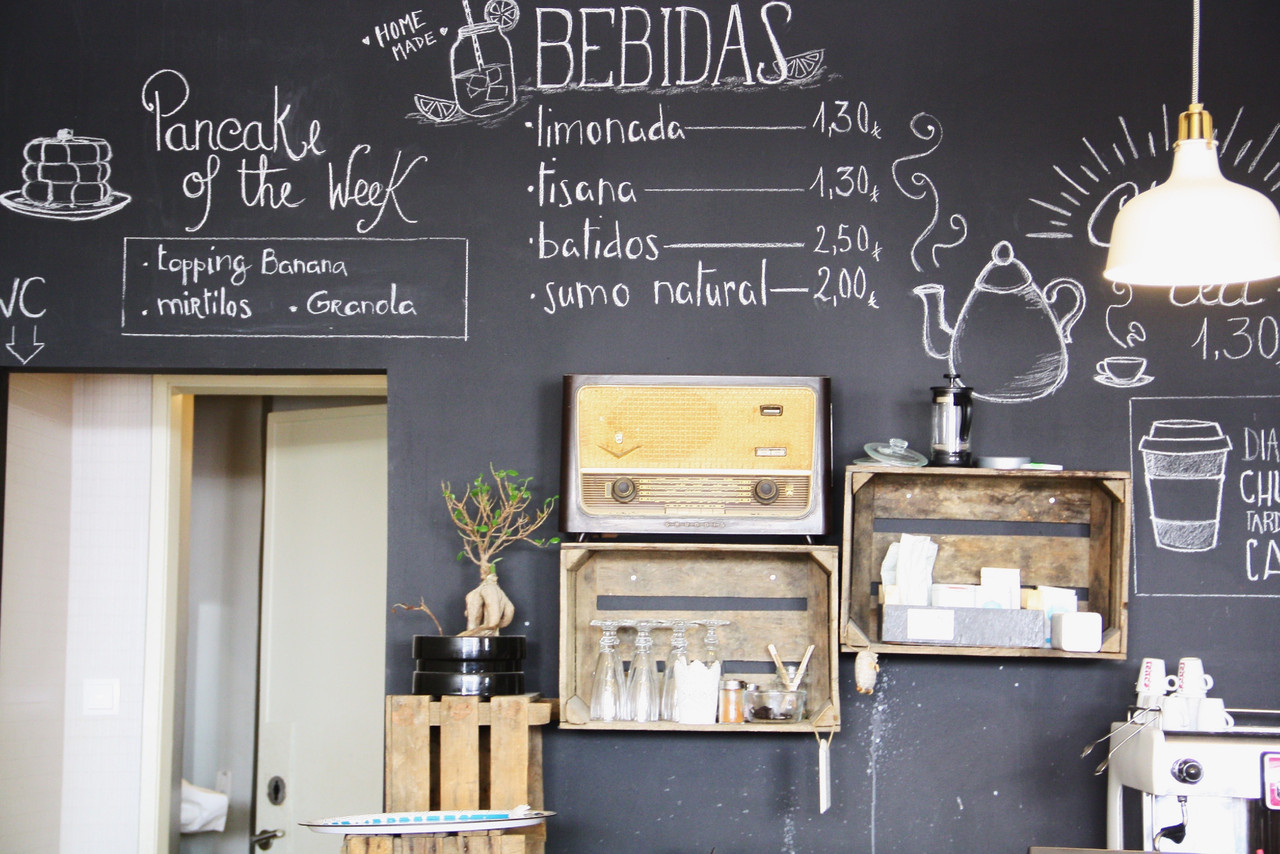 HOME
MADE
BEBIDAS
limonada 1,30€
tisana 1,30€
batidos 2,50€
sumo natural 2,00€
Pancake
of the Week
· topping Banana
· mirtilos · Granola
WC
1,30
DIA
TARD